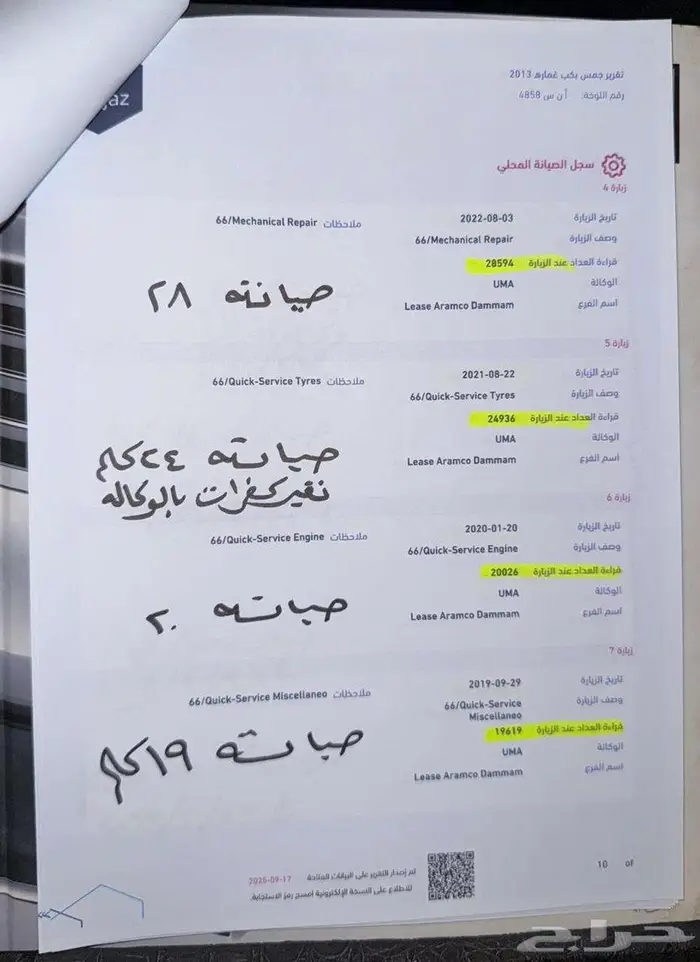 az
تقرير جمس بكب غمارة 2013
رقم اللوحة: أ ن س 4858
سجل الصيانة المحلي
زيارة 4
تاريخ الزيارة 2022-08-03
ملاحظات 66/Mechanical Repair
وصف الزيارة 66/Mechanical Repair
قراءة العداد عند الزيارة 28594
الوكالة UMA
اسم الفرع Lease Aramco Dammam
صيانته ٢٨
زيارة 5
تاريخ الزيارة 2021-08-22
ملاحظات 66/Quick-Service Tyres
وصف الزيارة 66/Quick-Service Tyres
قراءة العداد عند الزيارة 24936
الوكالة UMA
اسم الفرع Lease Aramco Dammam
صيانته ٢٤ كلم
تغير كفرات بالوكاله
زيارة 6
تاريخ الزيارة 2020-01-20
ملاحظات 66/Quick-Service Engine
وصف الزيارة 66/Quick-Service Engine
قراءة العداد عند الزيارة 20026
الوكالة UMA
اسم الفرع Lease Aramco Dammam
صيانته ٢٠
زيارة 7
تاريخ الزيارة 2019-09-29
ملاحظات 66/Quick-Service Miscellaneo
وصف الزيارة 66/Quick-Service
Miscellaneo
قراءة العداد عند الزيارة 19619
الوكالة UMA
اسم الفرع Lease Aramco Dammam
صيانته ١٩ كلم
10 of
تم إصدار التقرير على البيانات المتاحة 2025-09-17
للاطلاع على النسخة الإلكترونية امسح رمز الاستجابة.
حراج